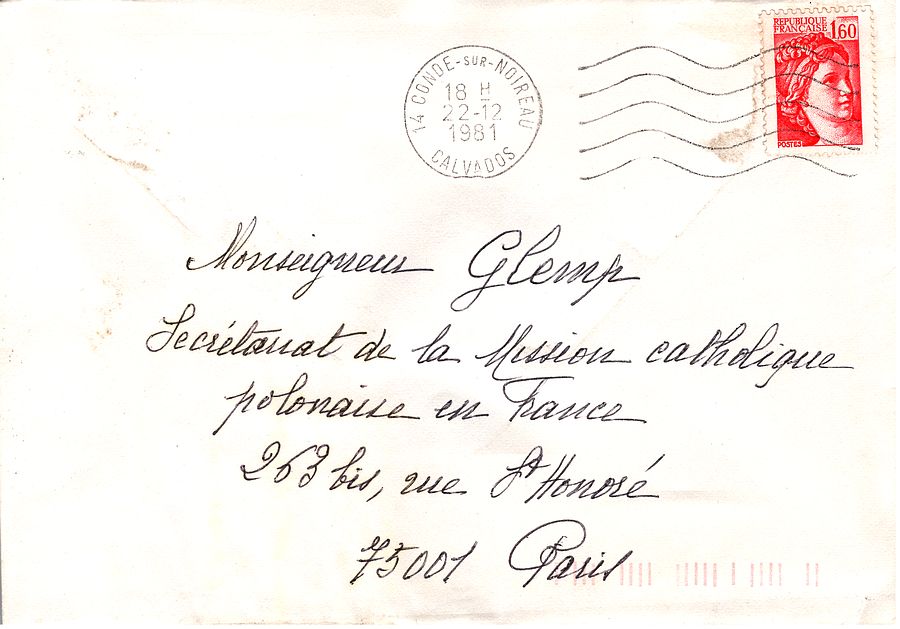 REPUBLIQUE
FRANÇAISE 1,60
POSTES
14 CONDE-SUR-NOIREAU
18 H
22-12
1981
CALVADOS
Monseigneur Glemp
Secrétariat de la Mission catholique
polonaise en France
263 bis, rue St Honoré
75001 Paris